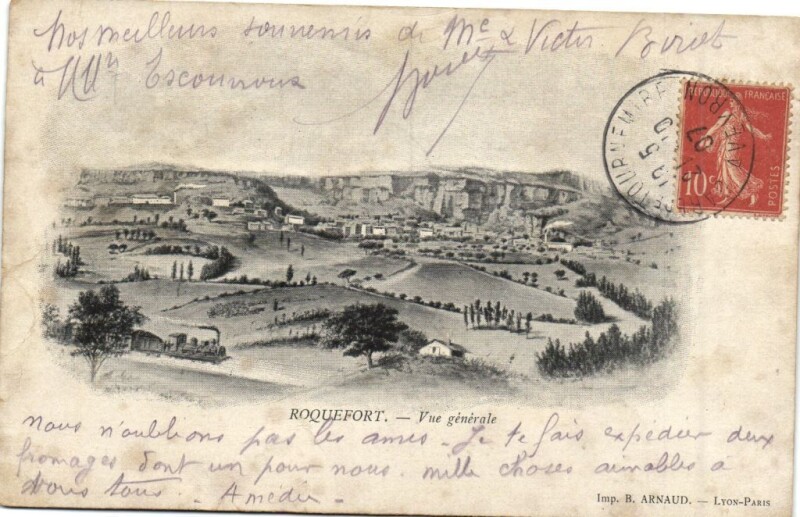 Nos meilleurs souvenirs de Mc & Victor Boriet
à Mlle Escourroux
RÉPUBLIQUE FRANÇAISE
10c
POSTES
TOURNEMIRE
AVEYRON
07
ROQUEFORT. — Vue générale
nous n'oublions pas les amis. Je te fais expédier deux
fromages dont un pour nous. mille choses aimables à
vous tous. Amédée.
Imp. B. ARNAUD. — LYON-PARIS